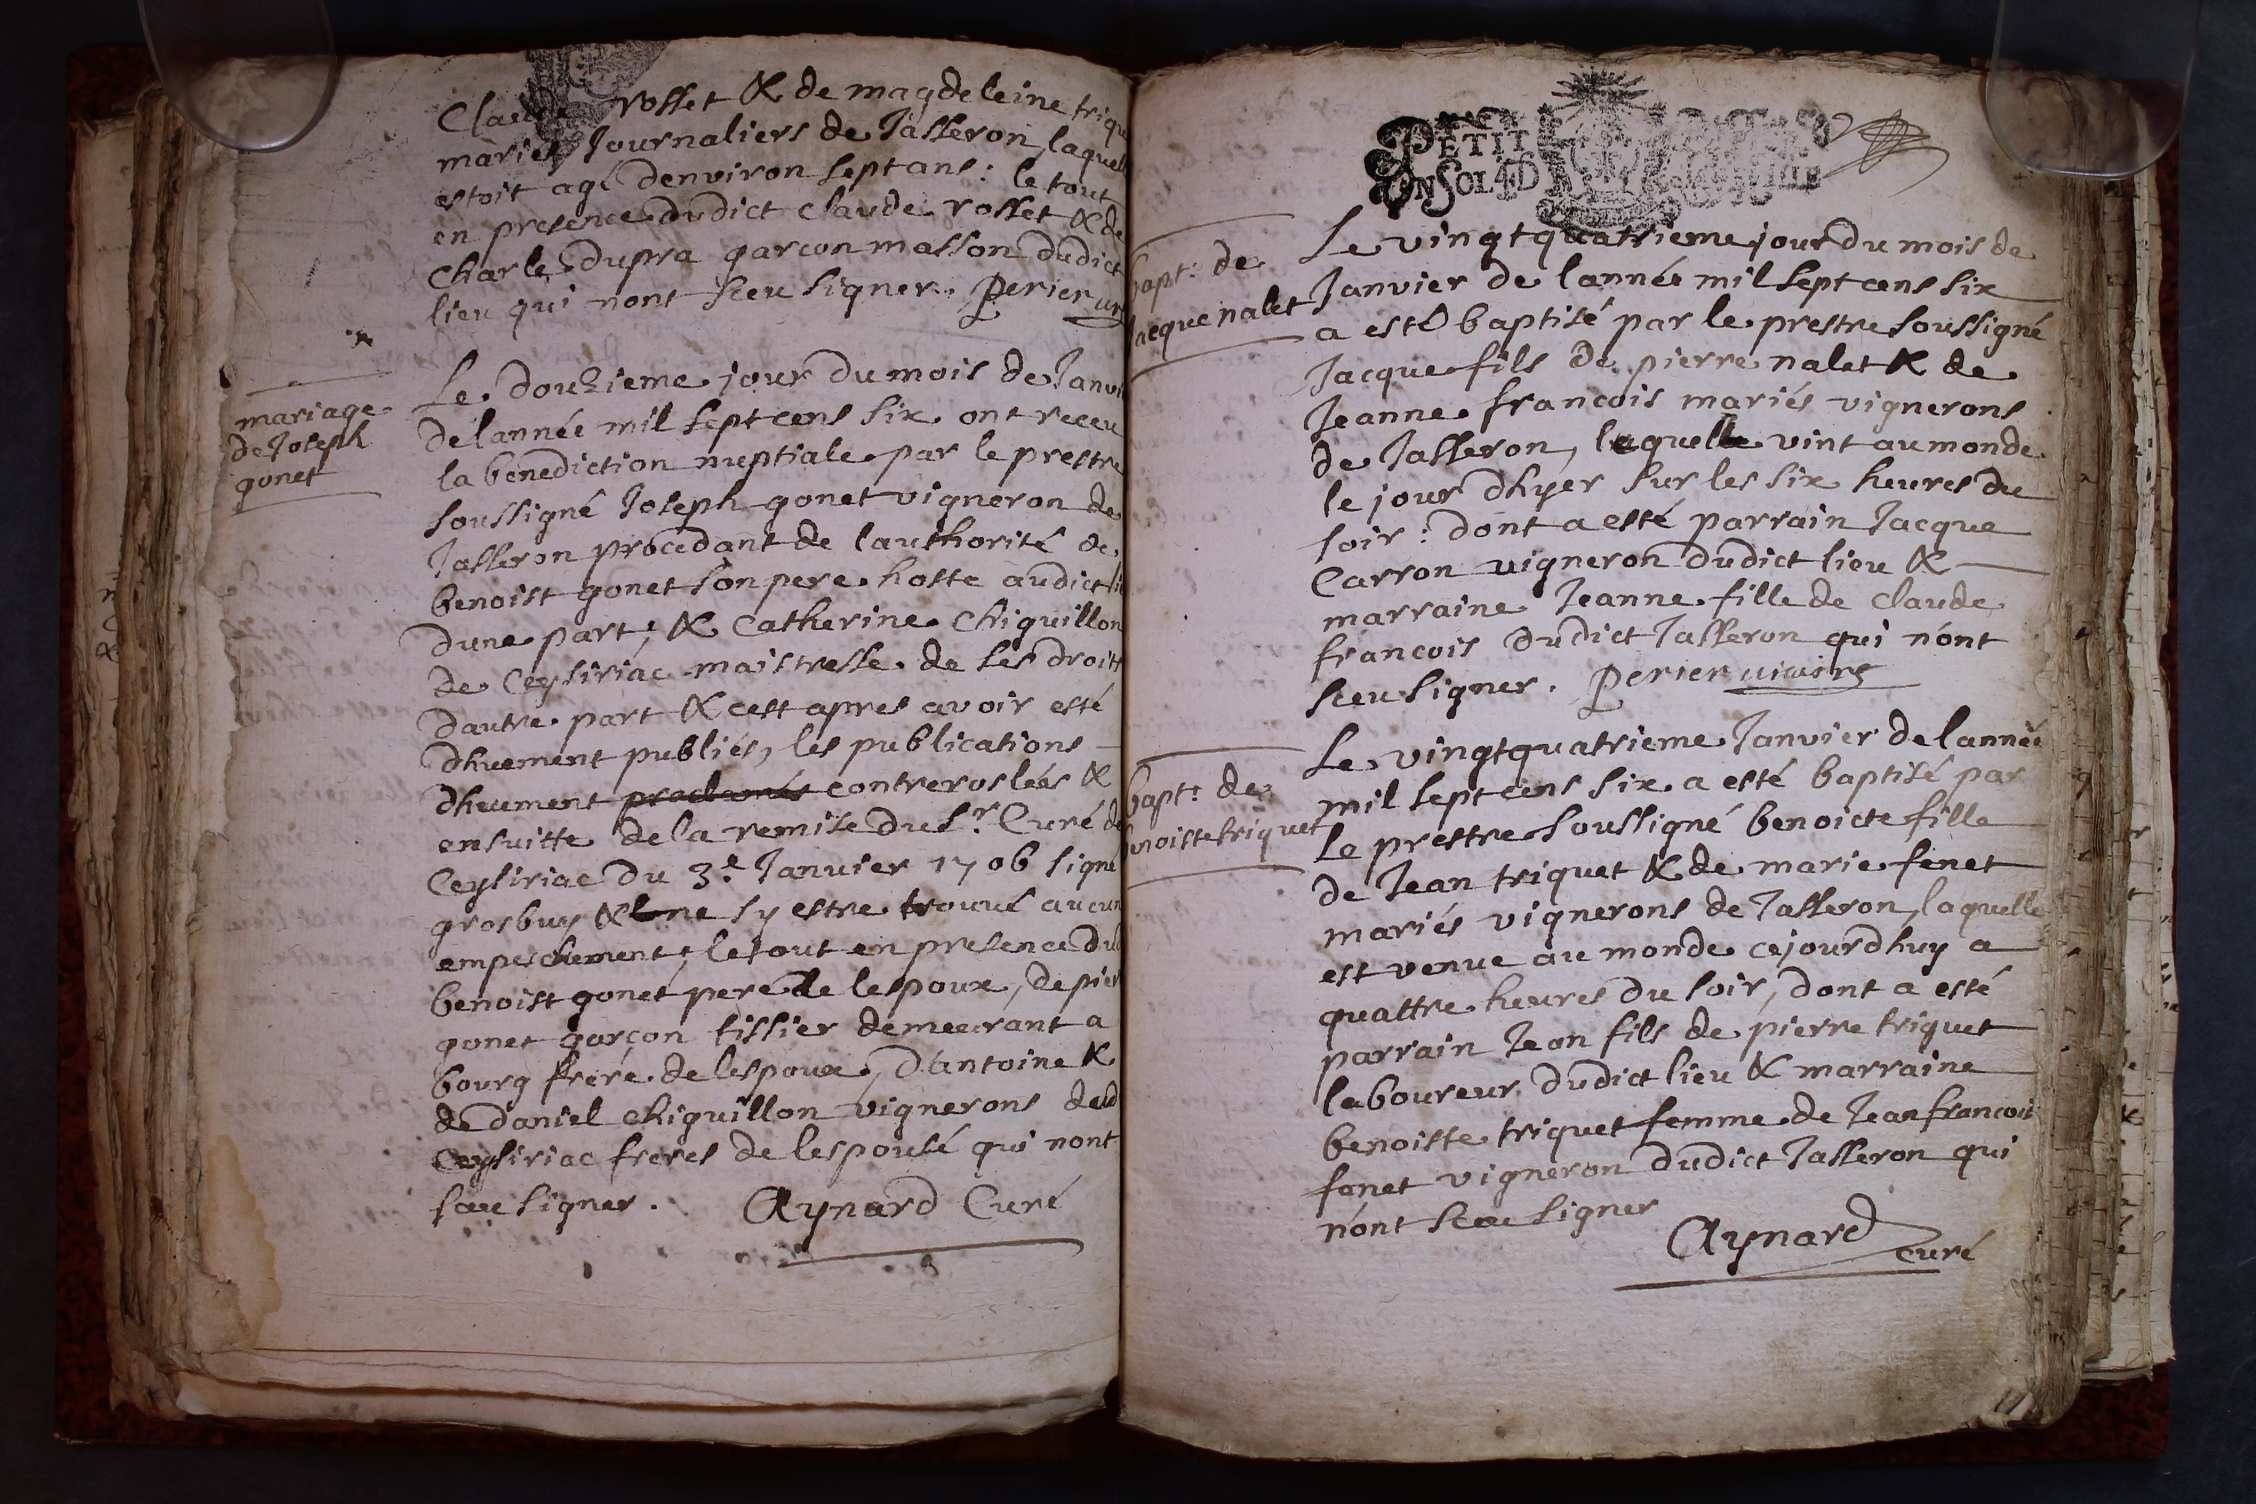 Claude rosset & de magdeleine trique
mariés Journaliers de Jasseron, laquelle
estoit agé denviron sept ans : le tout
en presence dudict claude rosset & de
Charle dupra garcon masson dudict
lieu qui nont sceu signer. Perier
mariage
de Joseph
gonet
Le douzieme jour du mois de Janvi
de lannée mil sept cens six ont receu
la benediction nuptiale par le prestre
soussigné Joseph gonet vigneron de
Jasseron procedant de lauthorité de
benoist gonet son pere hoste audict
dune part ; & Catherine Chiquillon
de Ceysiriac maistresse de ses droits
dautre part & cest apres avoir esté
dhuement publiés, les publications
dheument proclamés contreroslées &
ensuitte de la remise du Sr. Curé de
Ceysiriac du 3e. Janvier 1706 signé
grosbuy & ne sy estre trouvé aucun
empeschement ; le tout en presence dud
benoist gonet pere de lespoux, de pier
gonet garçon tissier demeurant a
bourg frere de lespoux, d'antoine &
de daniel chiquillon vignerons dud
Ceysiriac freres de lespousé qui nont
sceu signer. Aynard Curé
PETIT
UN SOL 4 D
bapt: de
Jacque nalet
Le vingt quatrieme jour du mois de
Janvier de lannée mil sept cens six
a esté baptisé par le prestre soussigné
Jacque fils de pierre nalet & de
Jeanne francois mariés vignerons
de Jasseron, lequelle vint au monde
le jour dhyer sur les six heures du
soir : dont a esté parrain Jacque
Carron vigneron dudict lieu &
marraine Jeanne fille de claude
francois dudict Jasseron qui n'ont
sceu signer. Perier vicaire
bapt: de
benoiste triquet
Le vingt quatrieme Janvier de lannée
mil sept cens six a esté baptisé par
le prestre soussigné benoicte fille
de Jean triquet & de marie fenet
mariés vignerons de Jasseron, laquelle
est venue au monde cejourdhuy a
quattre heures du soir, dont a esté
parrain Jean fils de pierre triquet
laboureur dudict lieu & marraine
benoiste triquet femme de Jean francois
fenet vigneron dudict Jasseron qui
n'ont sceu signer
Aynard
curé